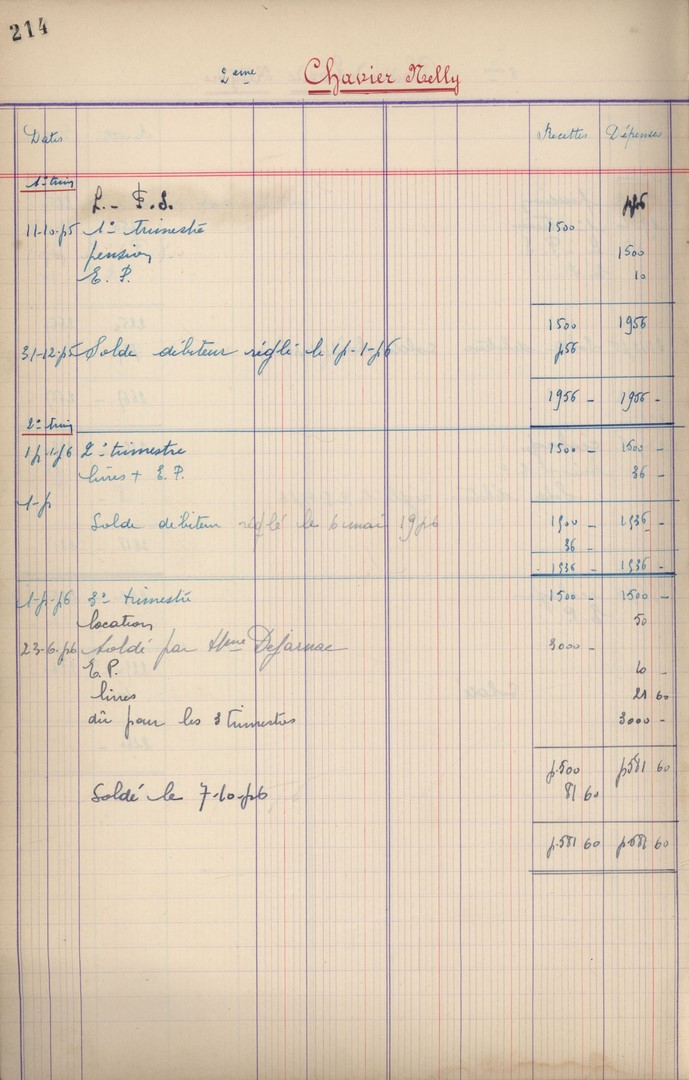 214
2eme Chavier Nelly
Dates Recettes Dépenses
1er trim
446
11-10-45 1er trimestre 1500
pension 1500
E. P. 10
1500 1956
31-12-45 Solde débiteur réglé le 14-1-46 456
1956 - 1956 -
2e trim
14-1-46 2e trimestre 1500 - 1500 -
livres + E. P. 36 -
1-4
Solde débiteur réglé le 6 mai 1946 1500 - 1536 -
36 -
1536 - 1536 -
1-4-46 3e trimestre 1500 - 1500 -
location 50
23-6-46 Soldé par Mme Dejarnac 3000 -
E.P. 10 -
livres 21 60
dû pour les 3 trimestres 3000 -
4.500 4581 60
Soldé le 7-10-46 81 60
4.581 60 4.581 60